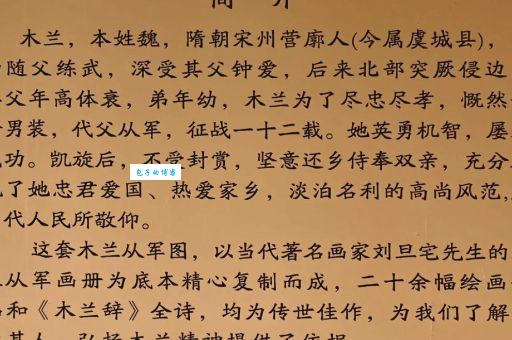 简 介
木兰，本姓魏，隋朝宋州营廓人(今属虞城县)，
随父练武，深受其父钟爱，后来北部突厥侵边
父年高体衰，弟年幼，木兰为了尽忠尽孝，慨然
男装，代父从军，征战一十二载。她英勇机智，屡
功。凯旋后，不受封赏，坚意还乡侍奉双亲，充分
了她忠君爱国、热爱家乡，淡泊名利的高尚风范，
代人民所敬仰。
包子的博客
这套木兰从军图，以当代著名画家刘旦宅先生的
从军画册为底本精心复制而成，二十余幅绘画
和《木兰辞》全诗，均为传世佳作，为我们了解
其人，弘扬木兰精神提供了依据